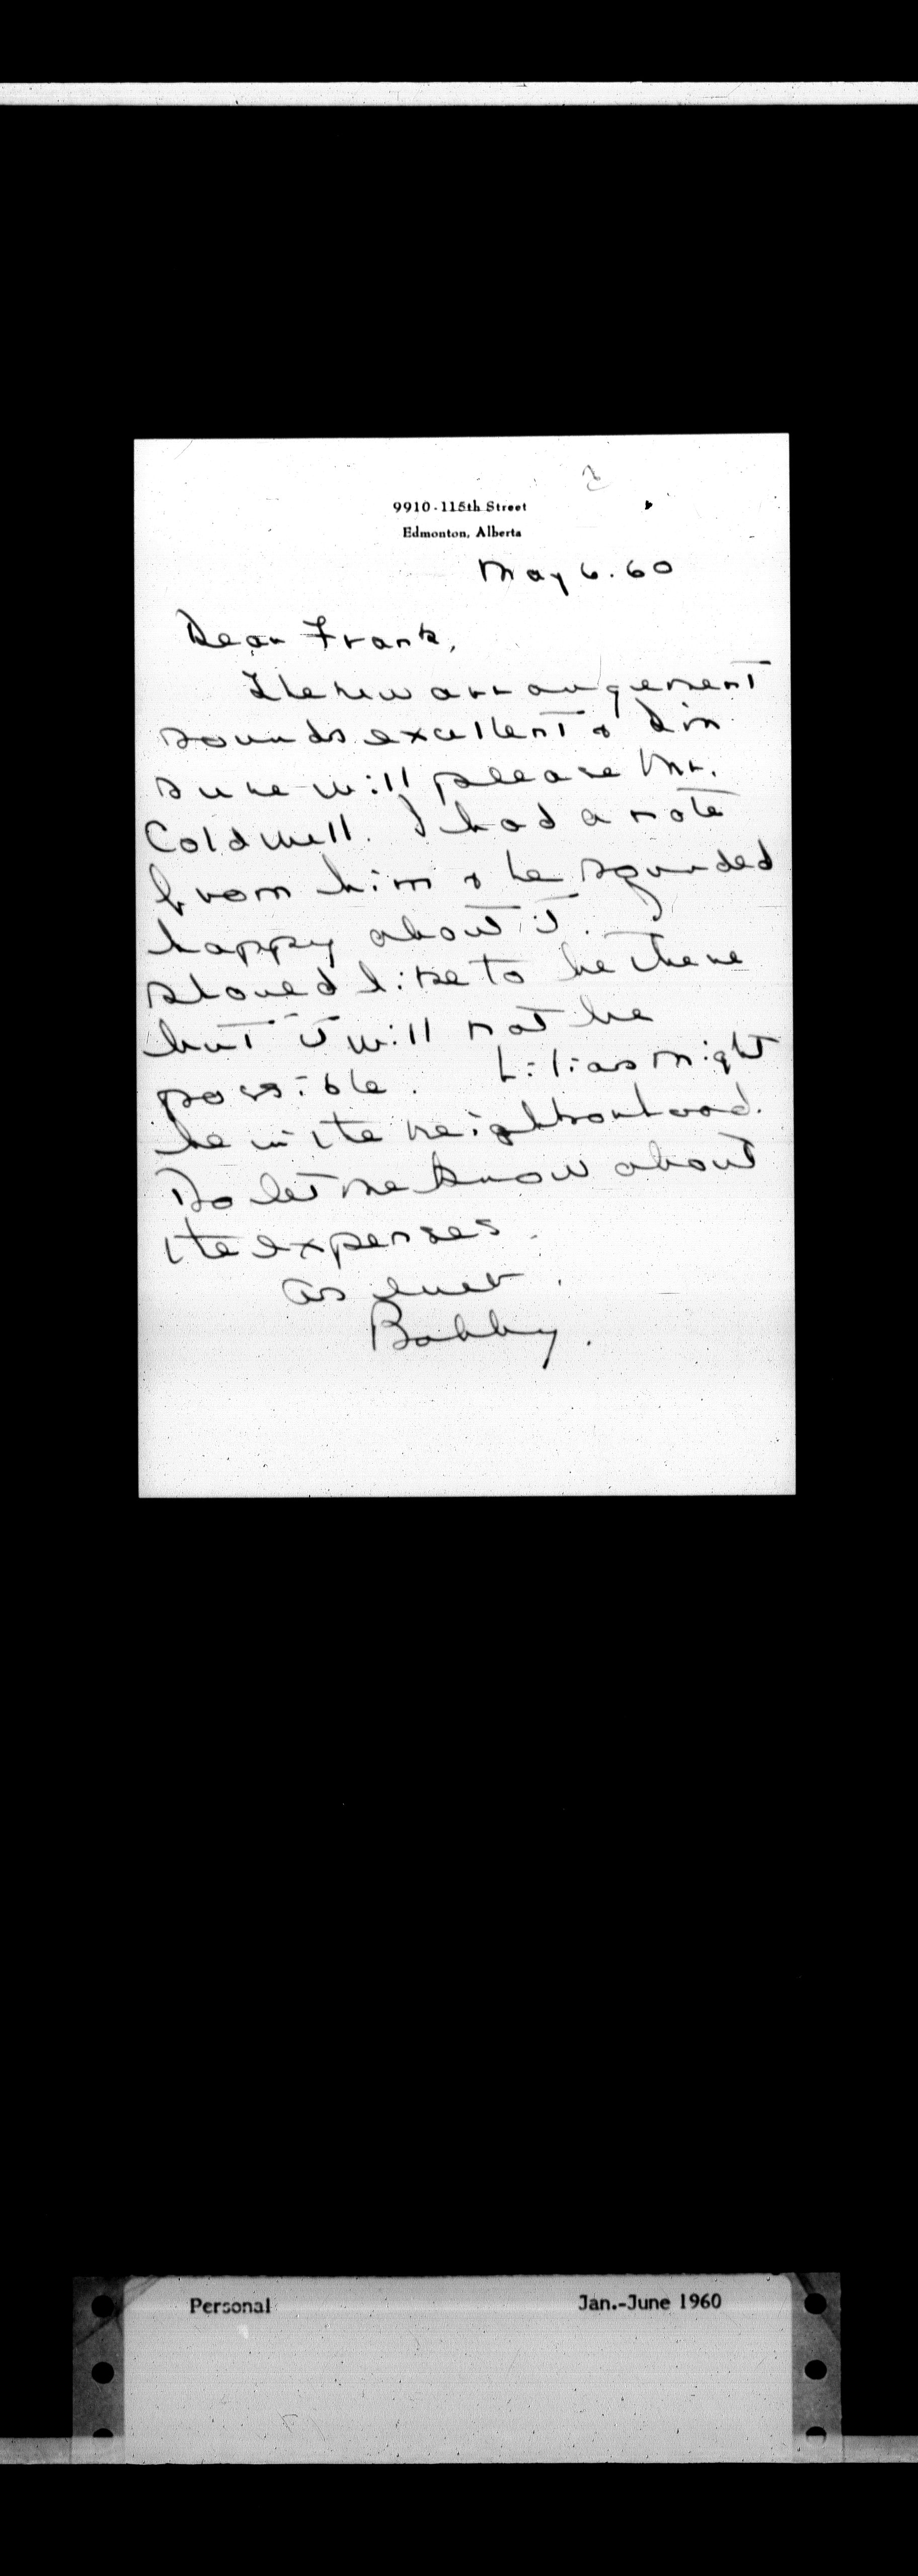 9910-115th Street
Edmonton, Alberta
May 6. 60
Dear Frank,
The new arrangement
sounds excellent & I'm
sure will please Mr.
Coldwell. I had a note
from him & he sounded
happy about it. I
should like to be there
but it will not be
possible. Lilias might
be in the neighbourhood.
Do let me know about
the expenses.
As ever.
Bobby.
Personal Jan.-June 1960